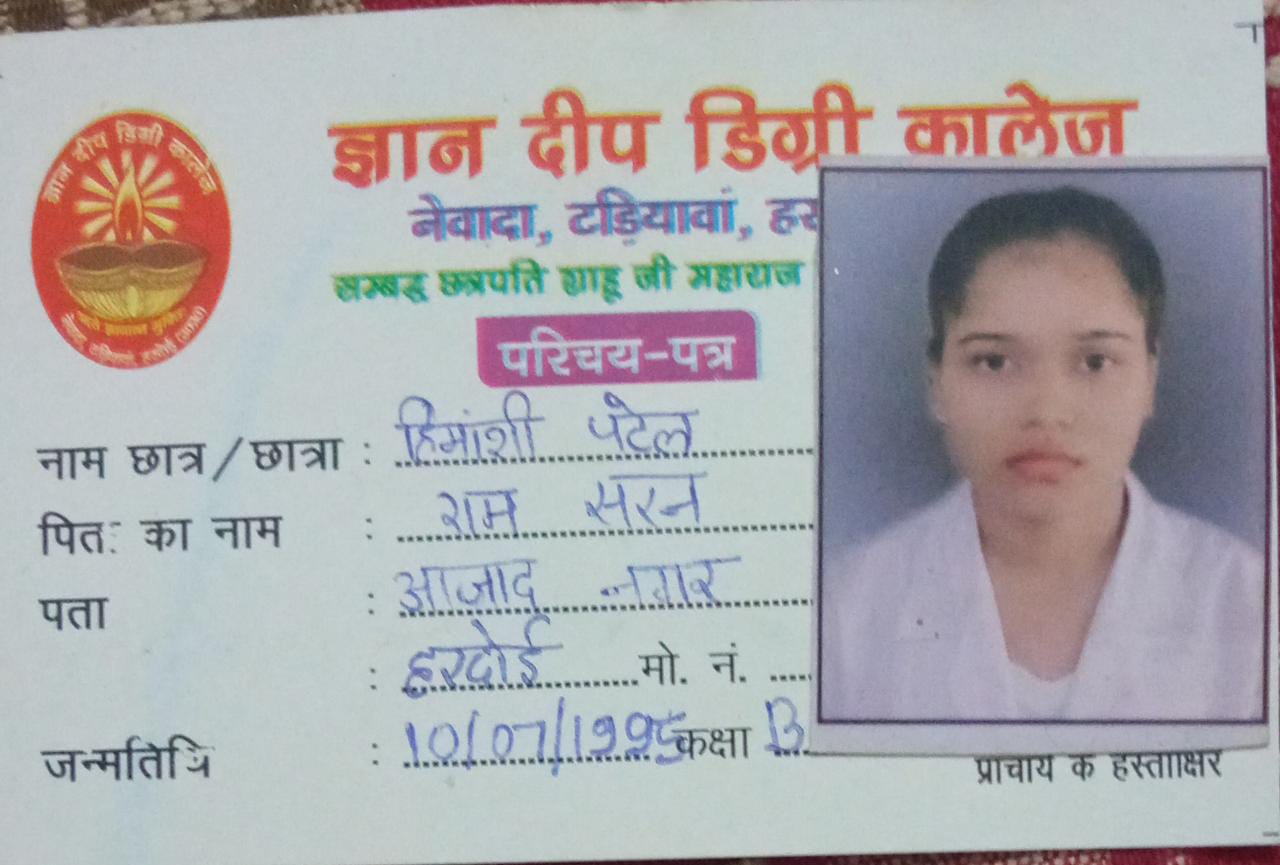 ज्ञान दीप डिग्री कालेज
ज्ञान दीप डिग्री कालेज
नेवादा, टड़ियावां,
सम्बद्ध छत्रपति शाहू जी महाराज
परिचय-पत्र
नाम छात्र/छात्रा : हिमांशी पटेल
पित: का नाम : राम सरन
पता : आजाद नगर
: हरदोई मो. नं.
जन्मतिथि : 10/07/1995 कक्षा B
प्राचार्य क हस्ताक्षर